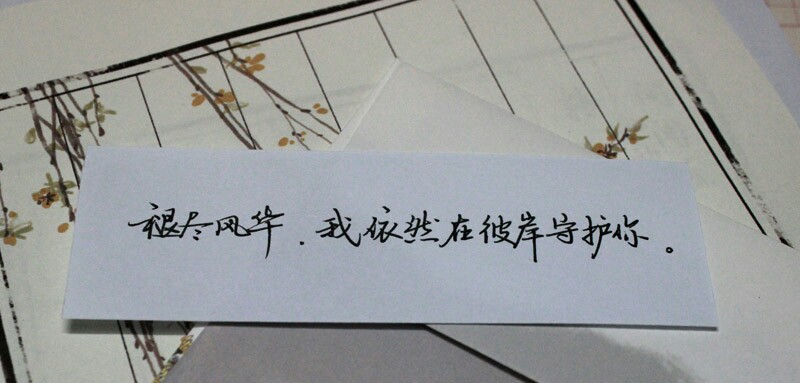 褪尽风华.我依然在彼岸守护你。